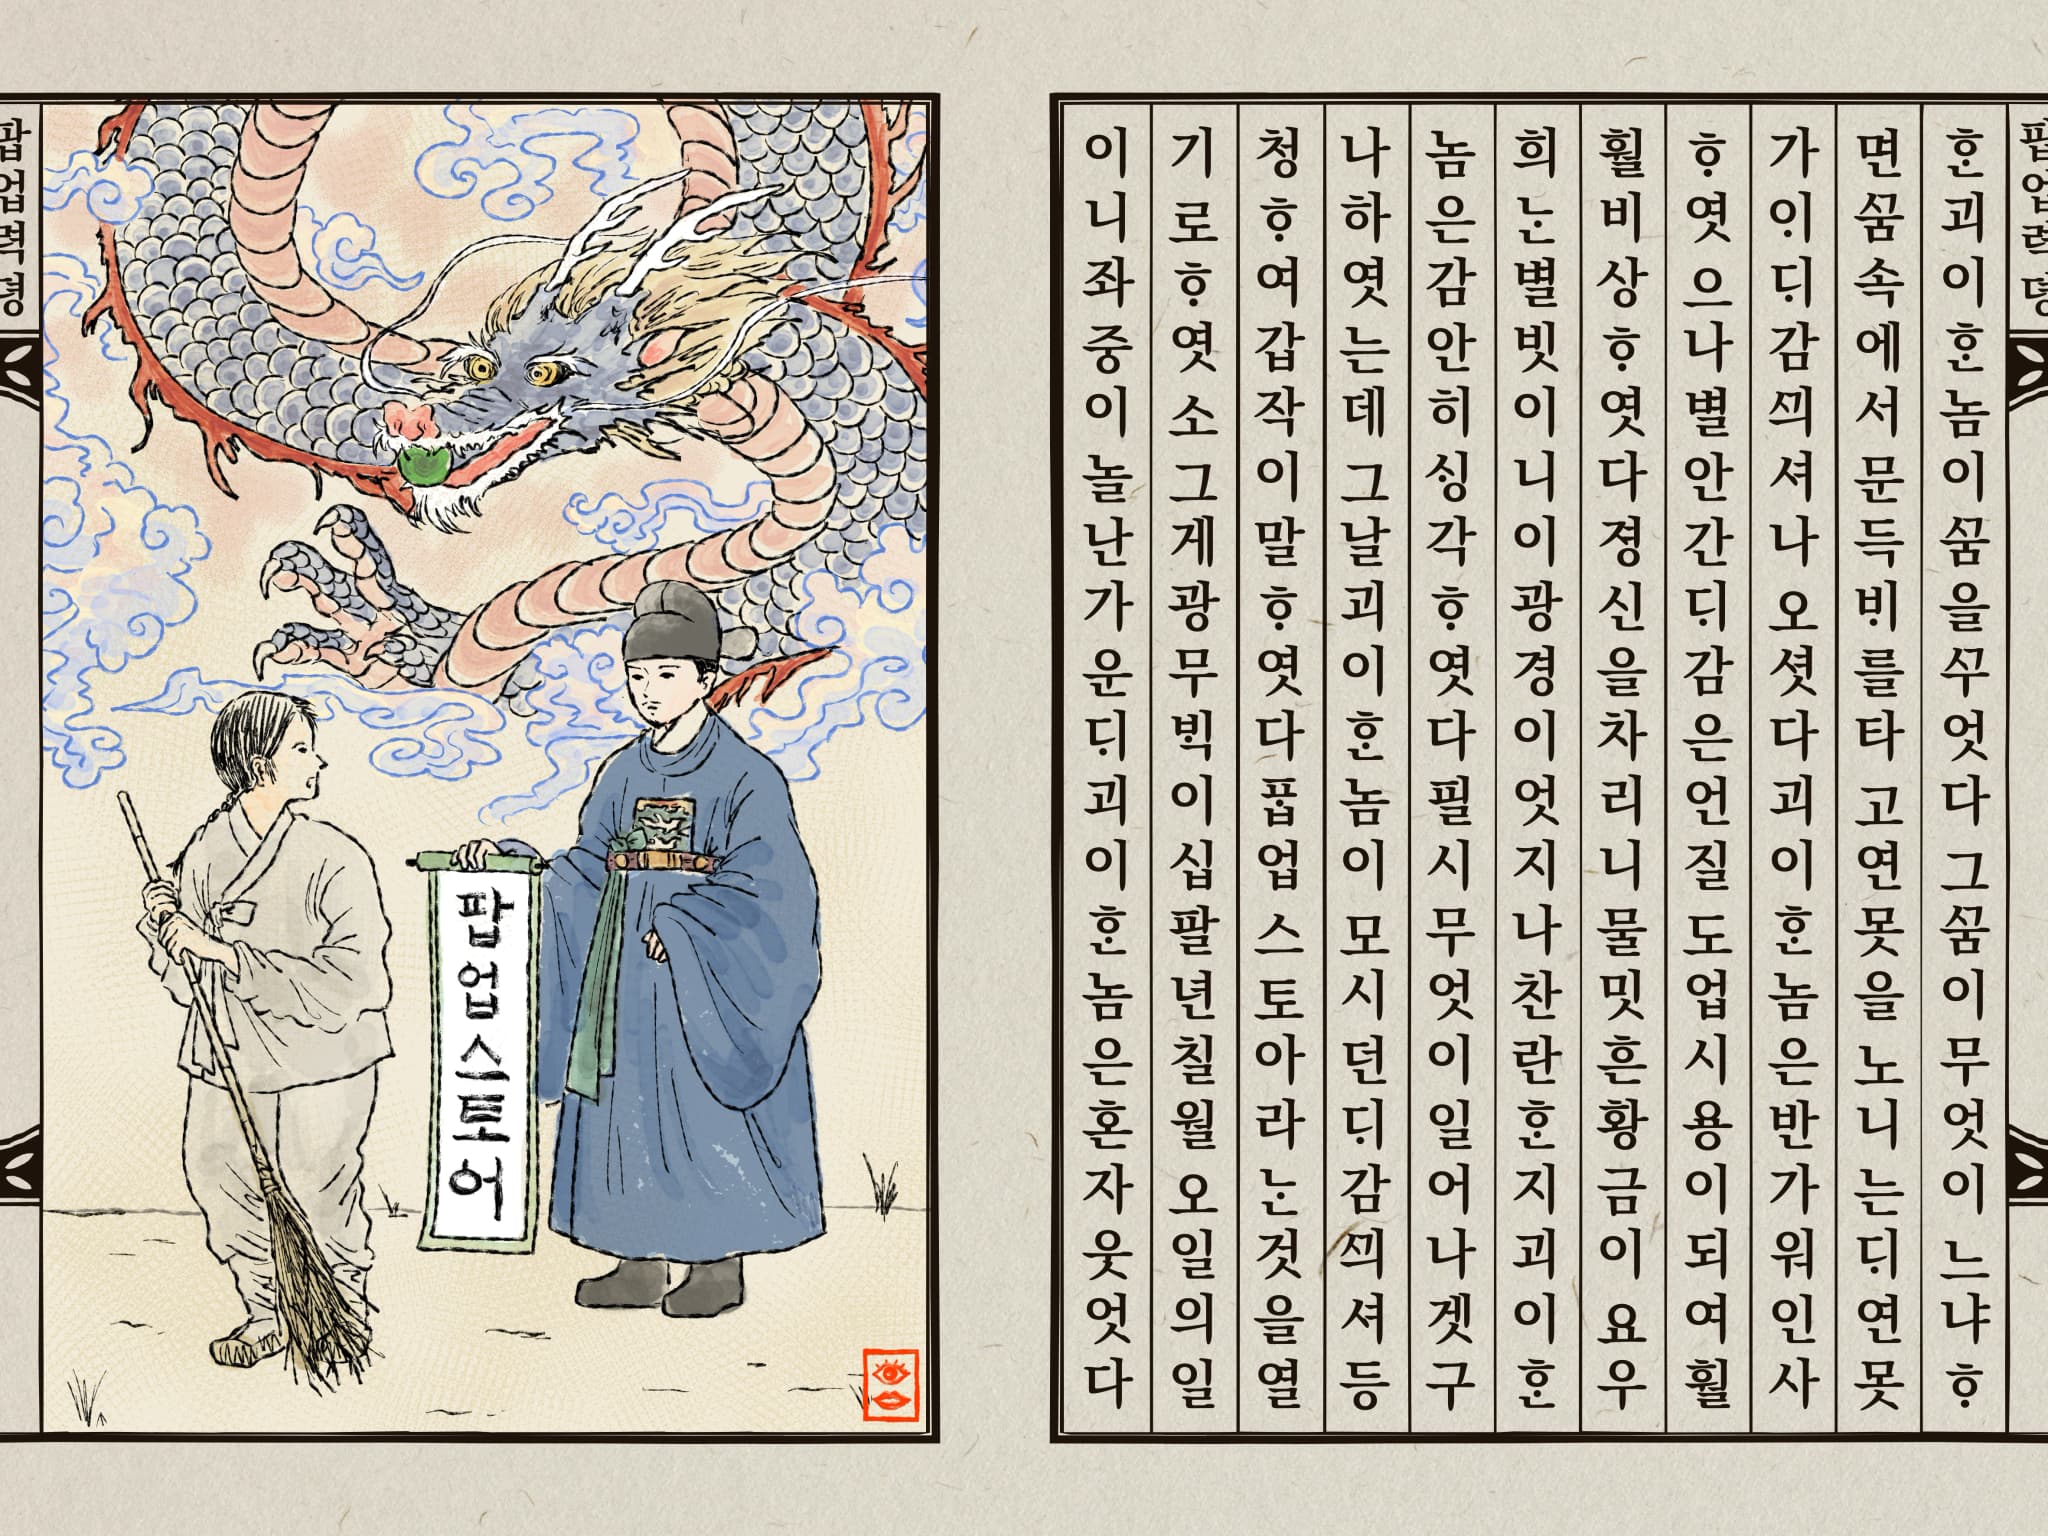 ᄒᆞᆫ괴이ᄒᆞᆫ놈이ᄭᅮᆷ을ᄭᅮ엇다그ᄭᅮᆷ이무엇이느냐ᄒᆞ
면ᄭᅮᆷ속에서문득ᄇᆡ를타고연못을노니는ᄃᆡ연못
가ᄋᆡᄃᆡ감ᄭᅴ셔나오셧다괴이ᄒᆞᆫ놈은반가워인사
ᄒᆞ엿으나별안간ᄃᆡ감은언질도업시용이되여훨
훨비상ᄒᆞ엿다졍신을차리니물밋흔황금이요우
희ᄂᆞᆫ별빗이니이광경이엇지나찬란ᄒᆞᆫ지괴이ᄒᆞᆫ
놈은감안히ᄉᆡᆼ각ᄒᆞ엿다필시무엇이일어나겟구
나하엿는데그날괴이ᄒᆞᆫ놈이모시던ᄃᆡ감ᄭᅴ셔등
청ᄒᆞ여갑작이말ᄒᆞ엿다ᄑᆞᆸ업스토아라ᄂᆞᆫ것을열
기로ᄒᆞ엿소그게광무ᄇᆡᆨ이십팔년칠월오일의일
이니좌중이놀난가운ᄃᆡ괴이ᄒᆞᆫ놈은혼자웃엇다
팝업스토어